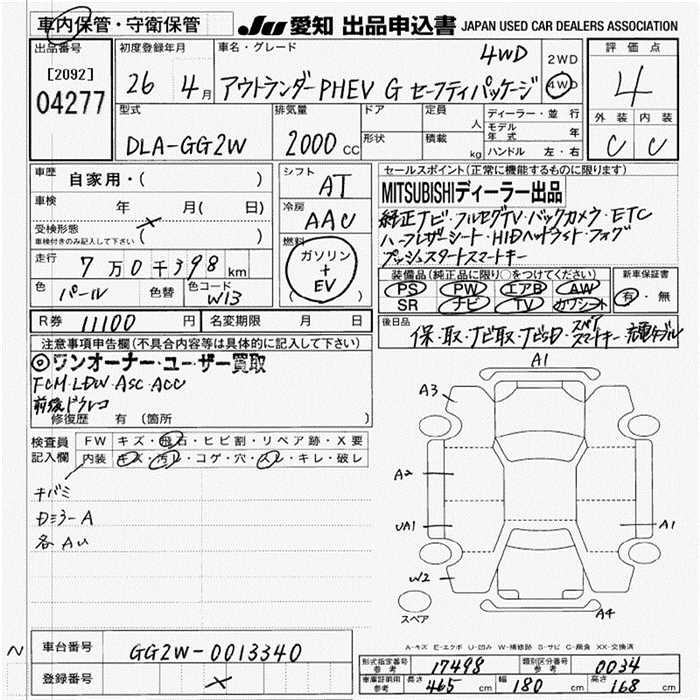 車内保管・守衛保管
JU 愛知 出品申込書 JAPAN USED CAR DEALERS ASSOCIATION
出品番号
[2092]
04277
初度登録年月
26 4月
車名・グレード
4WD
アウトランダーPHEV G セーフティパッケージ
2WD
4WD
評価点
4
外装 内装
C C
型式
DLA-GG2W
排気量
2000 CC
ドア
形状
定員 人
積載 kg
ディーラー・並行
モデル年式 年
ハンドル 左・右
車歴 自家用・( )
車検 年 月( 日)
受検形態
車検付きのみ記入して下さい ( )
走行 7万0千398 km
色 パール 色替 色コード W13
シフト AT
冷房 AAC
燃料
ガソリン
+
EV
( )
セールスポイント(正常に機能するものに限ります)
MITSUBISHIディーラー出品
純正ナビ・フルセグTV・バックカメラ・ETC
ハーフレザーシート・HIDヘッドライト・フォグ
プッシュスタートスマートキー
装備品(純正品に限り○をつけてください)
PS PW エアB AW
SR ナビ TV カワシート
新車保証書
有・無
R券 11100 円 名変期限 月 日
後日品
保・取・ナビ取・ナビSD・スペアスマートキー・充電ケーブル
注意事項申告欄(不具合内容等は具体的に記入して下さい)
◎ワンオーナー・ユーザー買取
FCM・LDW・ASC・ACC
前後ドラレコ
修復歴 有(箇所 )
検査員記入欄
FW キズ・飛石・ヒビ割・リペア跡・X要
内装 キズ・汚レ・コゲ・穴・スレ・キレ・破レ
キバミ
Dミラー A
各 AU
A1
A3
A2
UA1
A1
W2
A4
スペア
A-キズ E-エクボ U-凹み W-補修跡 S-サビ C-腐食 XX-交換済
車台番号 GG2W-0013340
登録番号
形式指定番号 参考 17498 類別区分番号 参考 0034
車庫証明用 参考 長さ 465 cm 幅 180 cm 高さ 168 cm